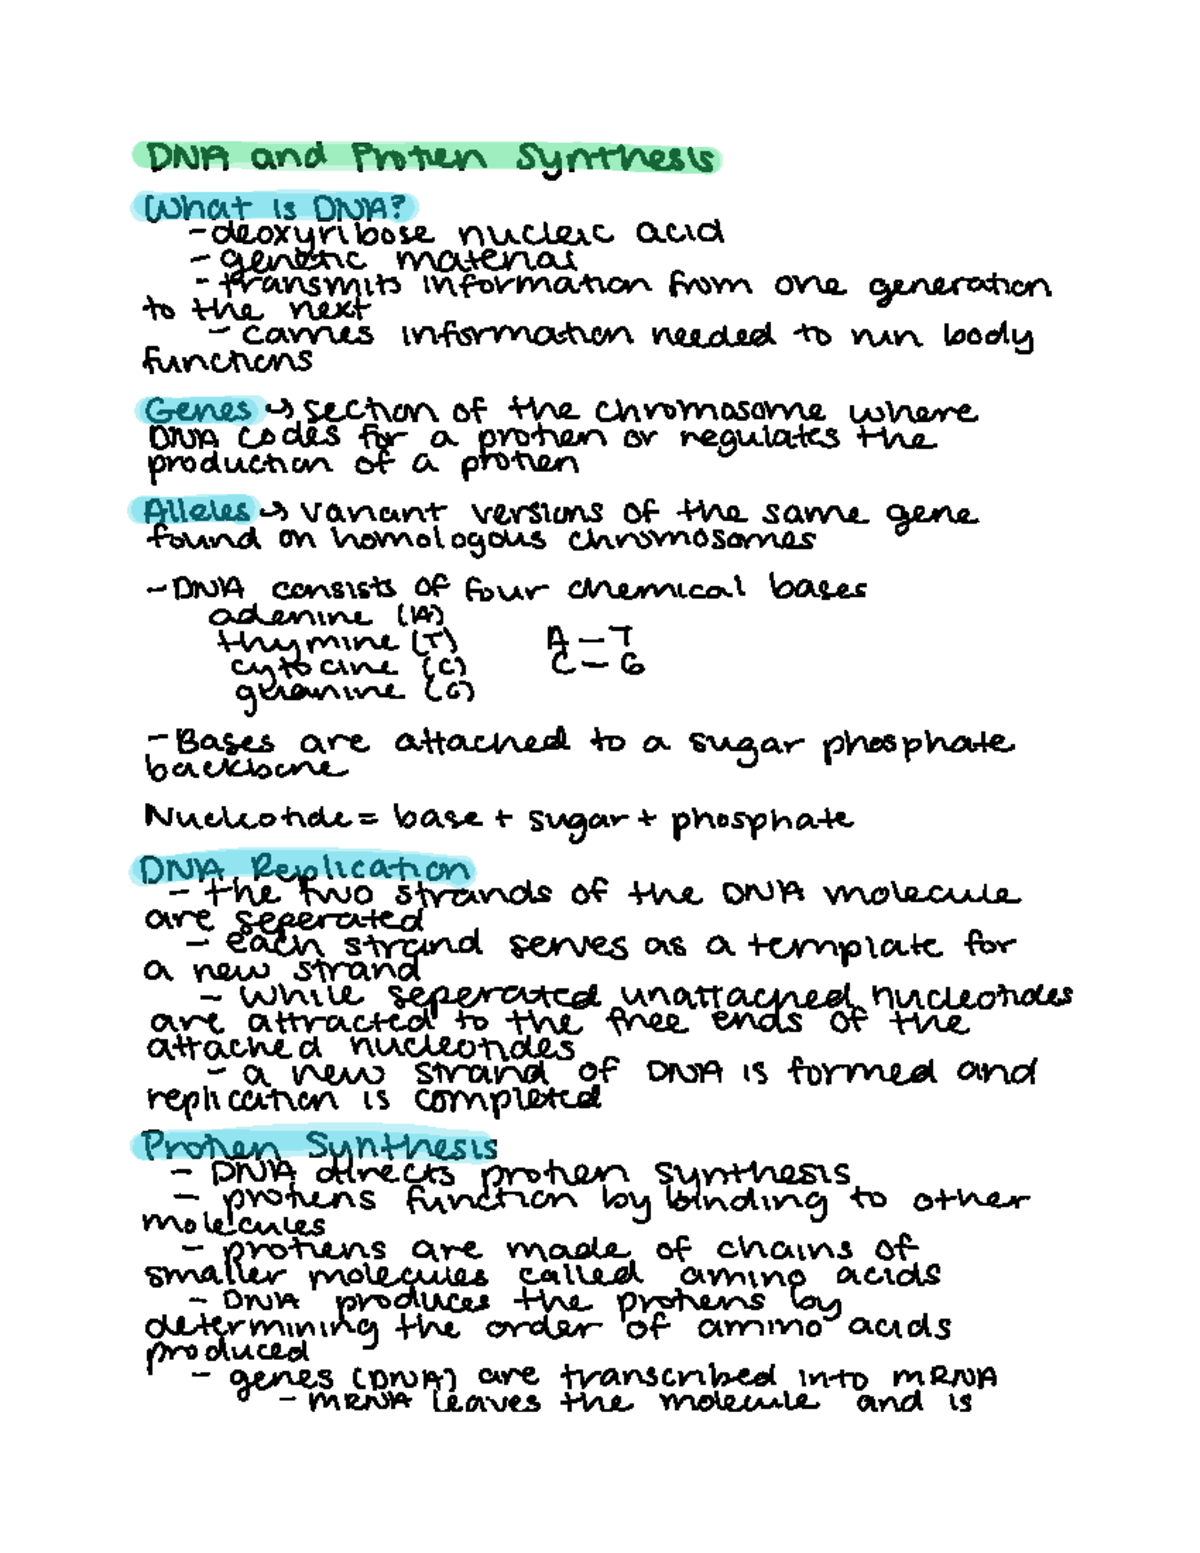 DNA and Protien Synthesis
What is DNA?
-deoxyribose nucleic acid
- genetic material
- transmits information from one generation
to the next
- carries information needed to run body
functions
Genes → section of the chromosome where
DNA codes for a protien or regulates the
production of a protien
Alleles → variant versions of the same gene
found on homologous chromosomes
- DNA consists of four chemical bases
adenine (A)
thymine (T) A - T
cytocine (C) C - G
guanine (G)
- Bases are attached to a sugar phosphate
backbone
Nucleotide = base + sugar + phosphate
DNA Replication
- the two strands of the DNA molecule
are seperated
- each strand serves as a template for
a new strand
- while seperated unattached nucleotides
are attracted to the free ends of the
attached nucleotides
- a new strand of DNA is formed and
replication is completed
Protien Synthesis
- DNA directs protien synthesis
- protiens function by binding to other
molecules
- protiens are made of chains of
smaller molecules called amino acids
- DNA produces the protiens by
determining the order of amino acids
produced
- genes (DNA) are transcribed into mRNA
- mRNA leaves the molecule and is